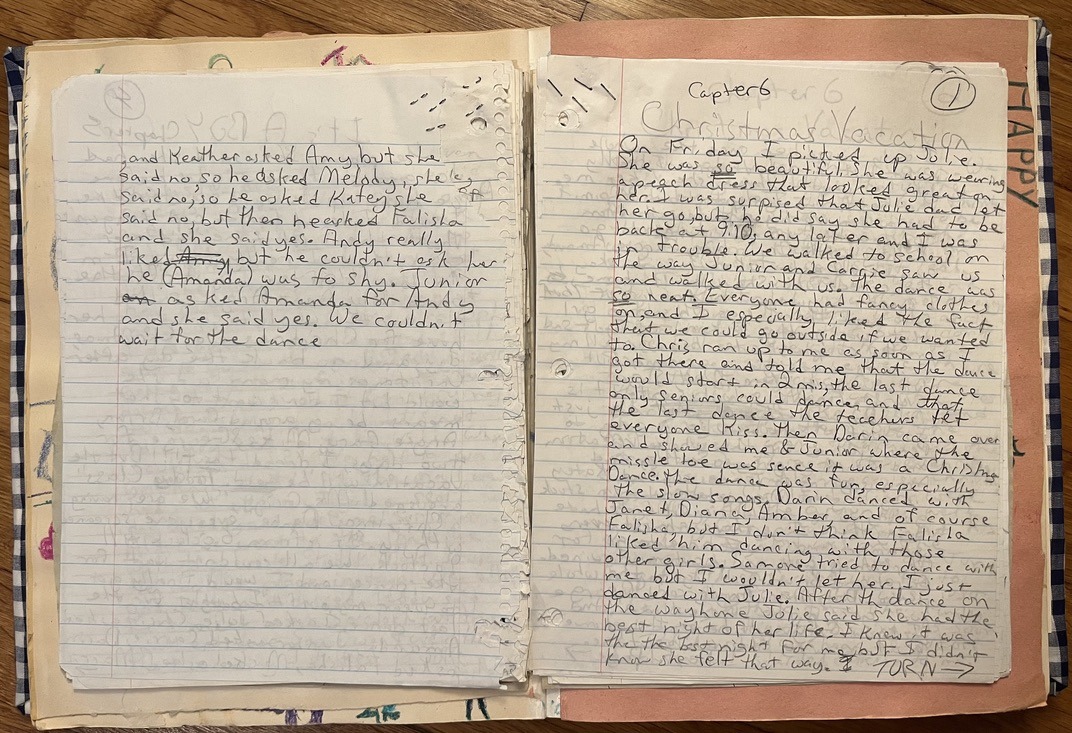 4
and Keather asked Amy but she
said no, so he asked Melody, she
said no, so he asked Katey she
said no, but then he arked Falisha
and she said yes. Andy really
liked Amy but he couldn't ask her
he (Amanda) was to shy. Junior
an asked Amanda for Andy
and she said yes. We couldn't
wait for the dance
Capter 6
1
Christmas Vacation
On Friday I picked up Jolie.
She was so beautiful. She was wearing
a peach dress that looked great on
her. I was surprised that Julie dad let
her go, but, he did say she had to be
back at 9:10, any later and I was
in trouble. We walked to school on
the way Junior and Cargie saw us
and walked with us. The dance was
so neat. Everyone had fancy clothes
on, and I especially liked the fact
that we could go outside if we wanted
to. Chris ran up to me as soon as I
got there and told me that the dance
would start in 2 mis, the last dance
only seniors could dance, and that
the last dance the teachers let
everyone Kiss. Then Darin came over
and showed me & Junior where the
missle toe was sence it was a Christmas
Dance. the dance was fun, especially
the slow songs. Darin danced with
Janet, Diana, Amber and of course
Falisha, but I don't think Falisha
liked him dancing with those
other girls. Samone tried to dance with
me but I wouldn't let her. I just
danced with Julie. After th dance on
the way home Jolie said she had the
best night of her life. I knew it was
the the best night for me, but I didn't
know she felt that way. I TURN →
HAPPY